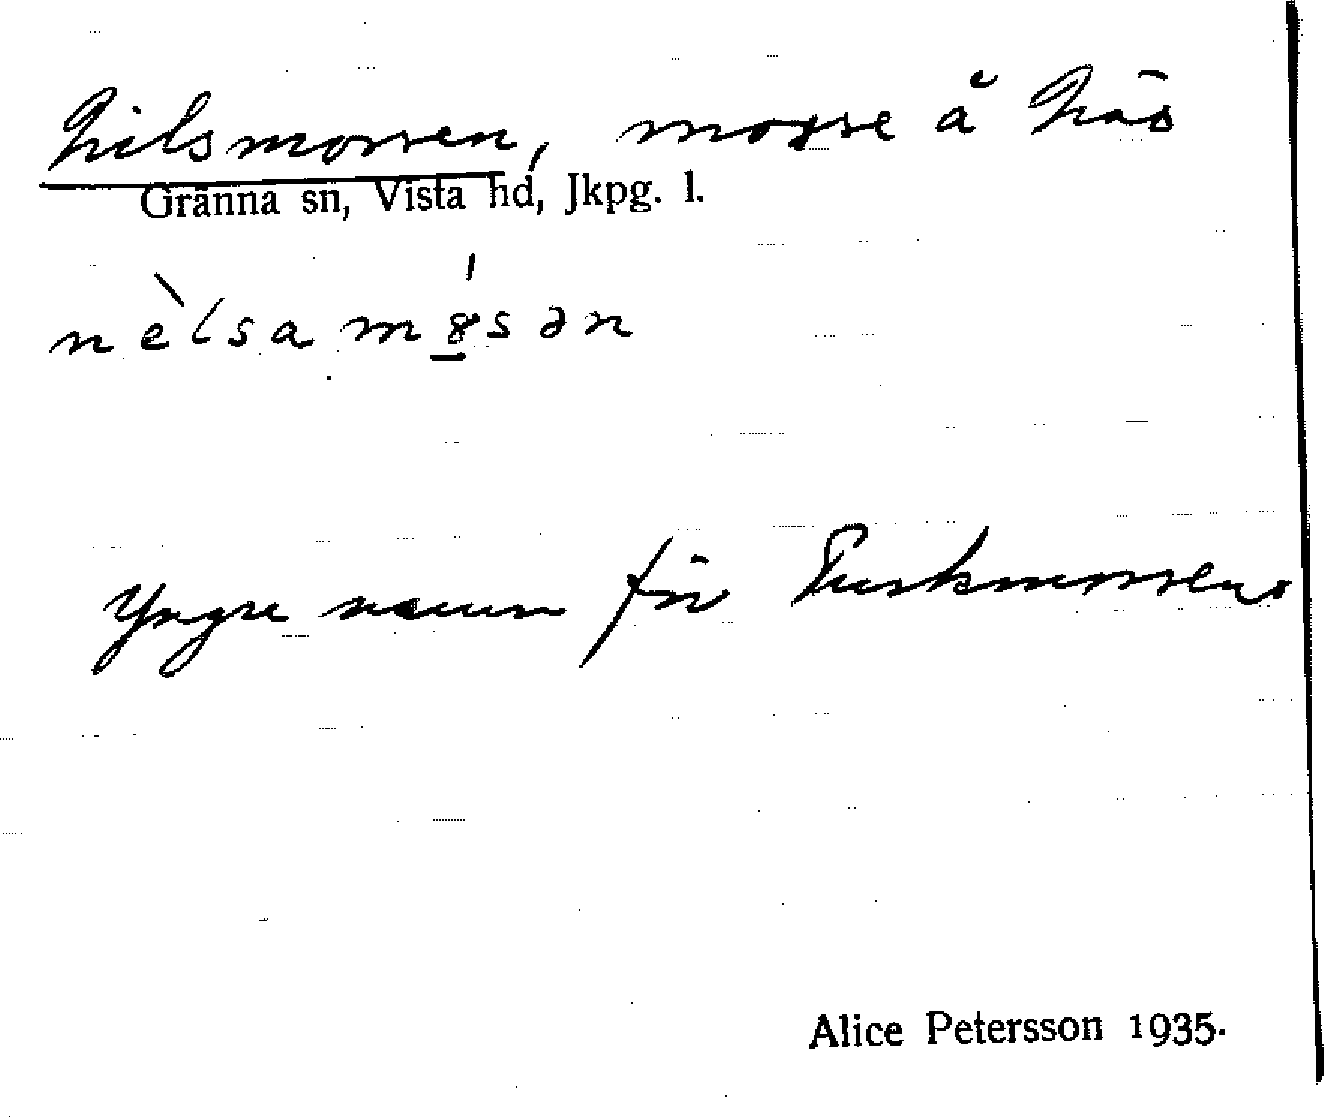 Nilsmossen, mosse å Näs
Gränna sn, Vista hd, Jkpg. l.
nèlsamo̱sən
Yngre namn för
Alice Petersson 1935.